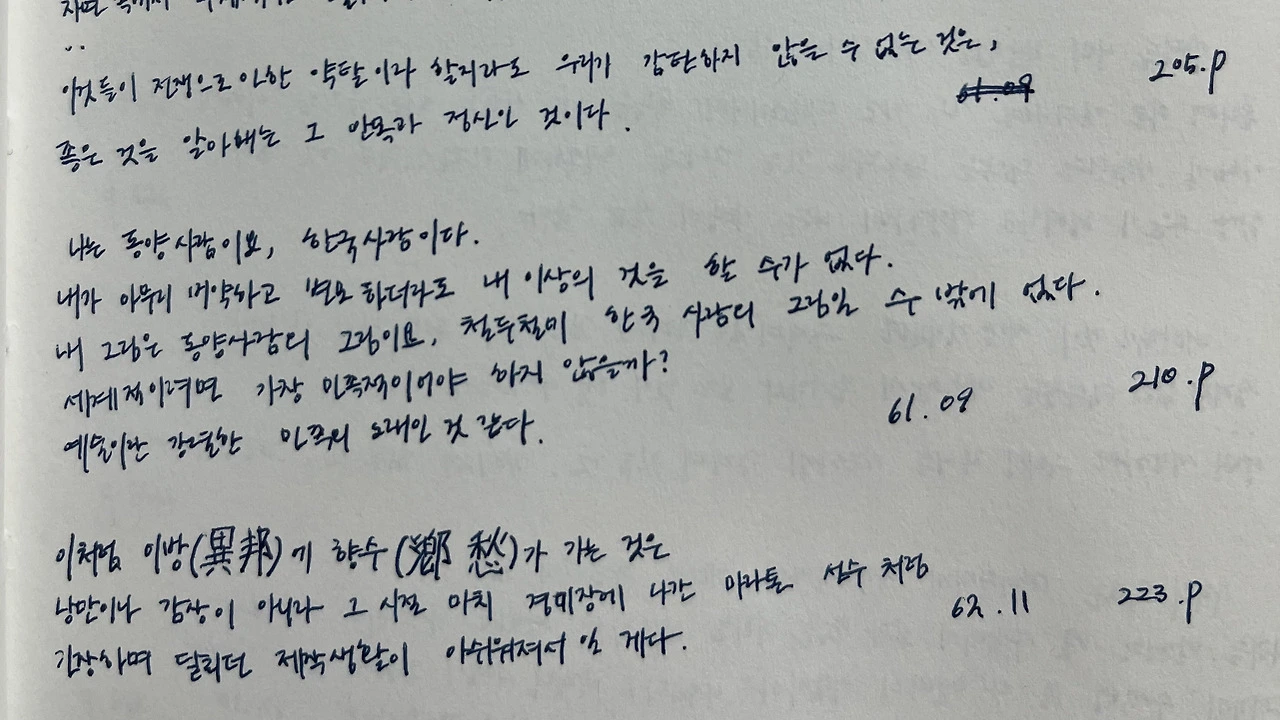 ..
이것들이 전쟁으로 인한 약탈이라 할지라도 우리가 감탄하지 않을 수 없는 것은,
61.09
205.p
좋은 것을 알아내는 그 안목과 정신인 것이다.
나는 동양사람이요, 한국사람이다.
내가 아무리 비약하고 변모하더라도 내 이상의 것을 할 수가 없다.
내 그림은 동양사람의 그림이요, 철두철미 한국 사람의 그림일 수 밖에 없다.
세계적이려면 가장 민족적이어야 하지 않을까?
예술이란 강렬한 민족의 노래인 것 같다.
61.09
210.p
이처럼 이방(異邦)에 향수(鄕愁)가 가는 것은
낭만이나 감상이 아니라 그 시절 마치 경기장에 나간 마라톤 선수 처럼
긴장하며 달리던 제작생활이 아쉬워져서 일 게다.
62.11
223.p